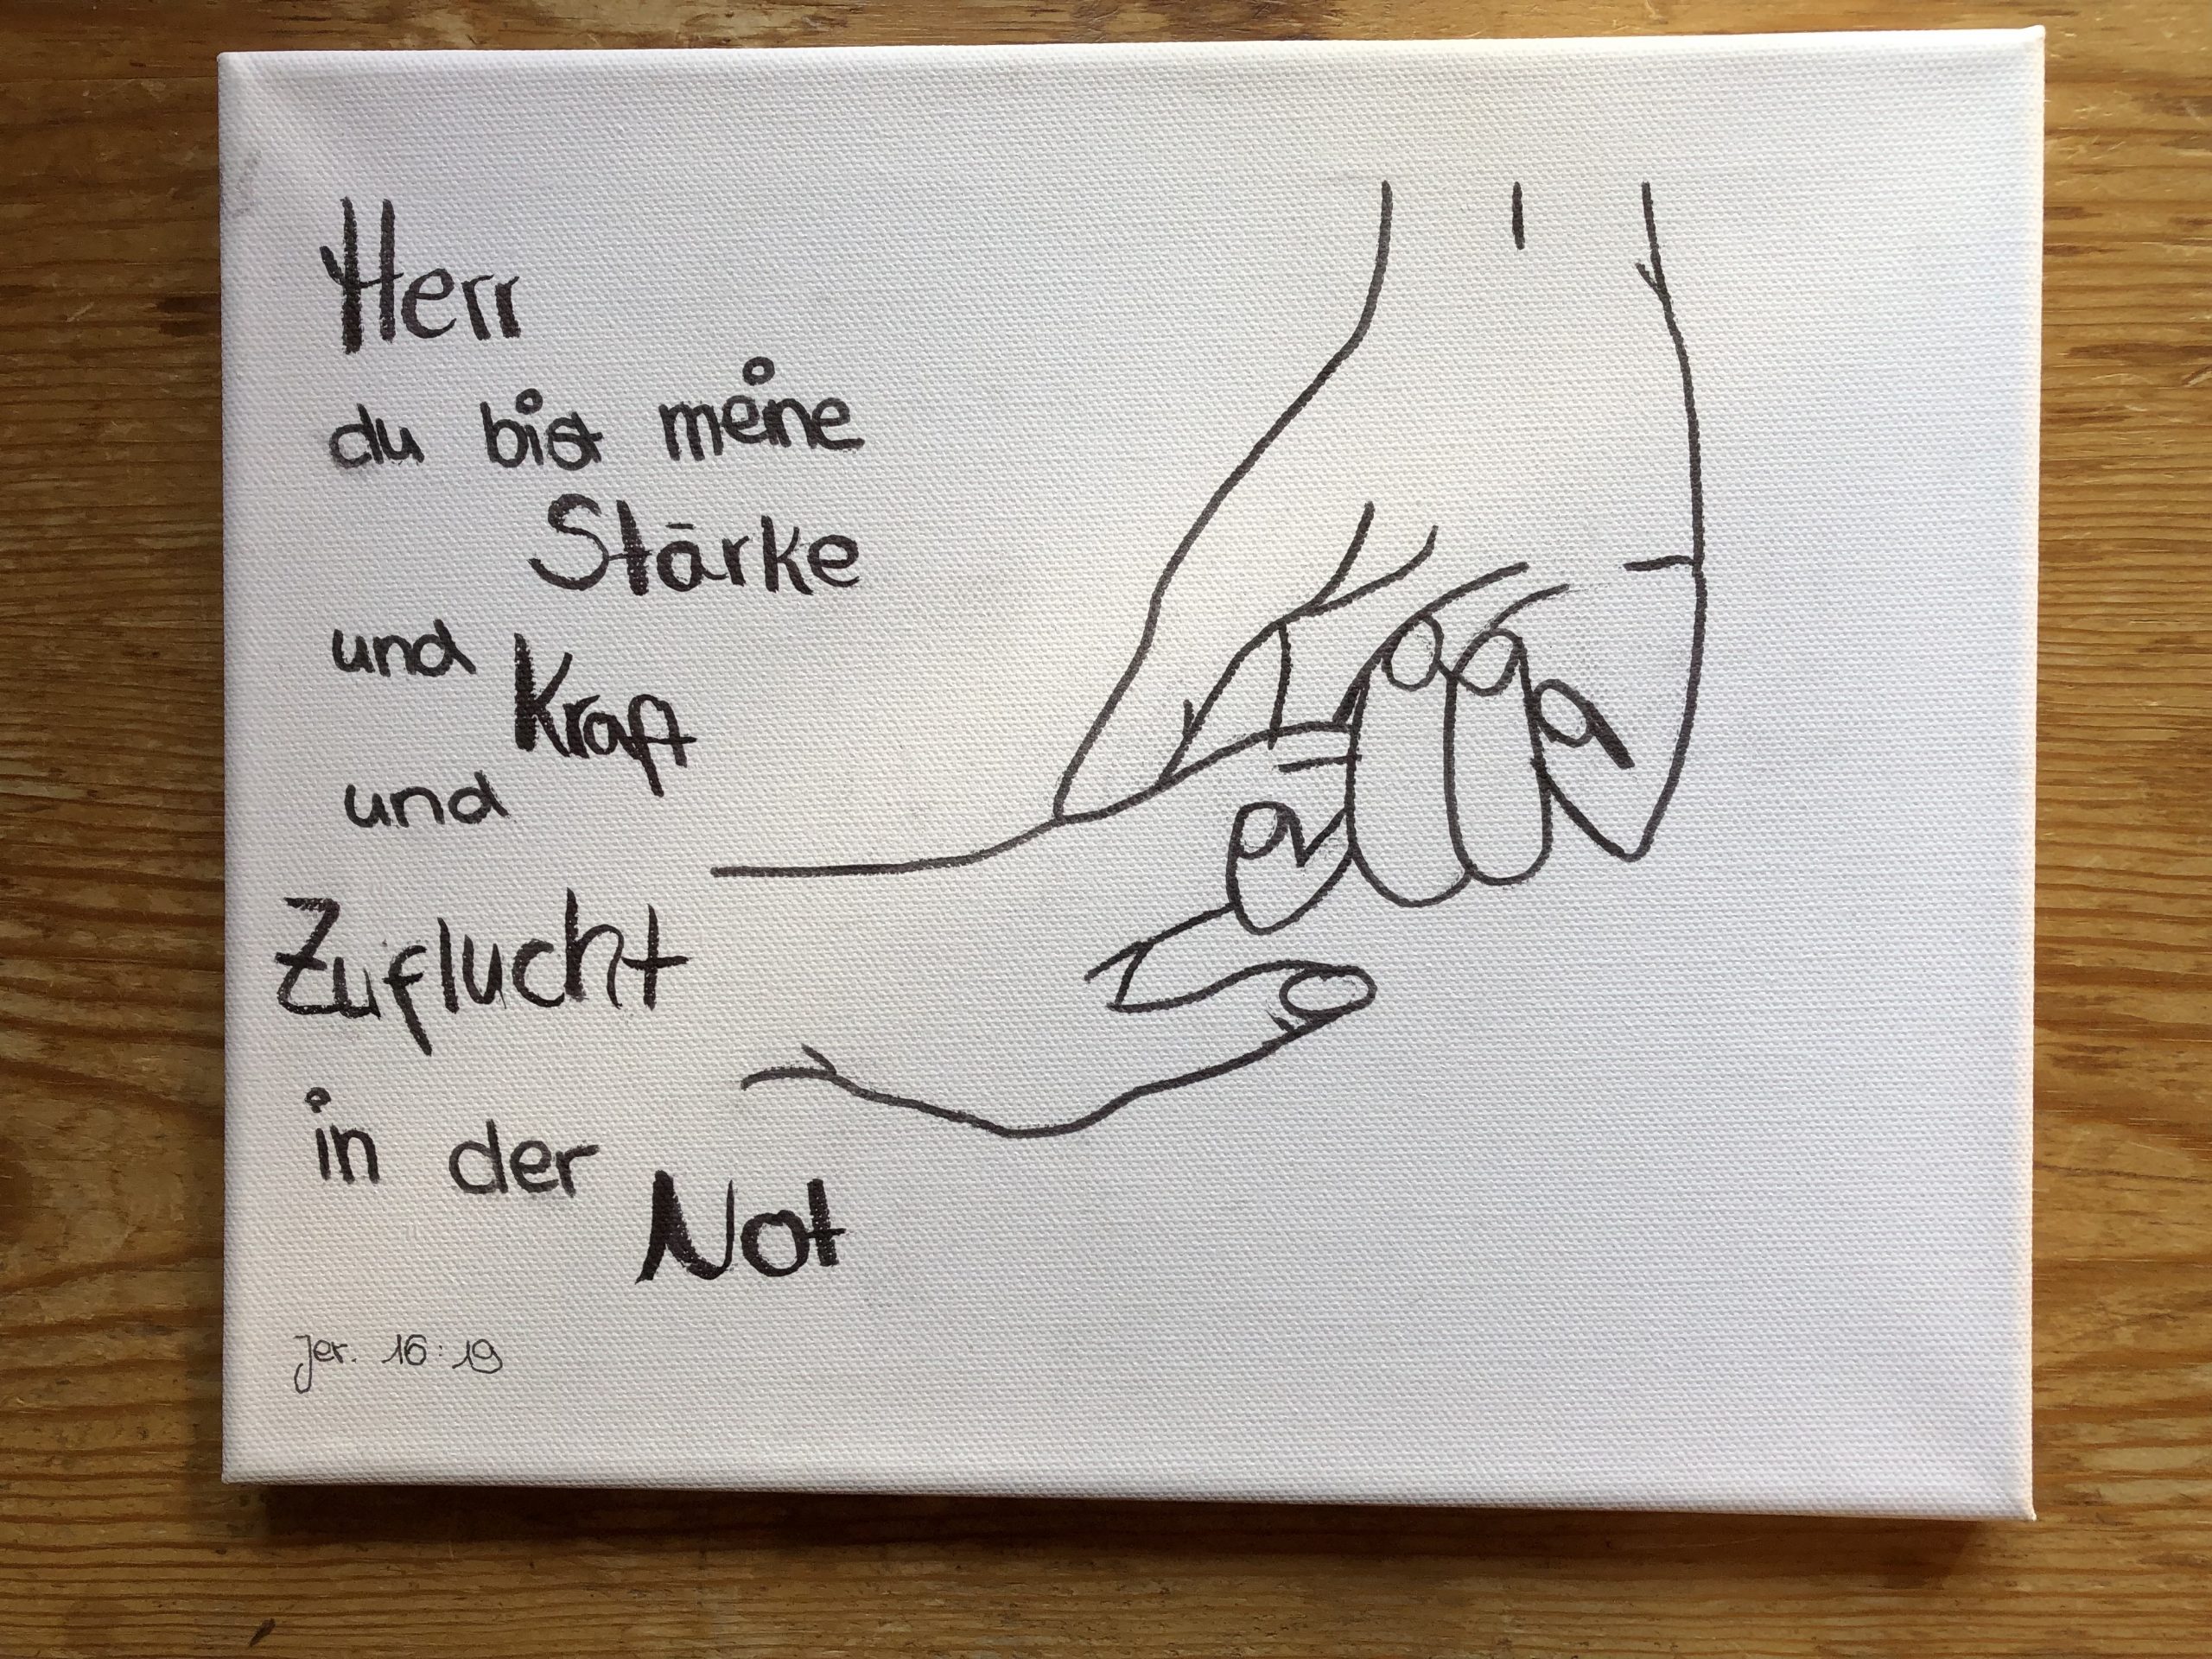 Herr
du bist meine
Stärke
und Kraft
und
Zuflucht
in der
Not
Jer. 16:19